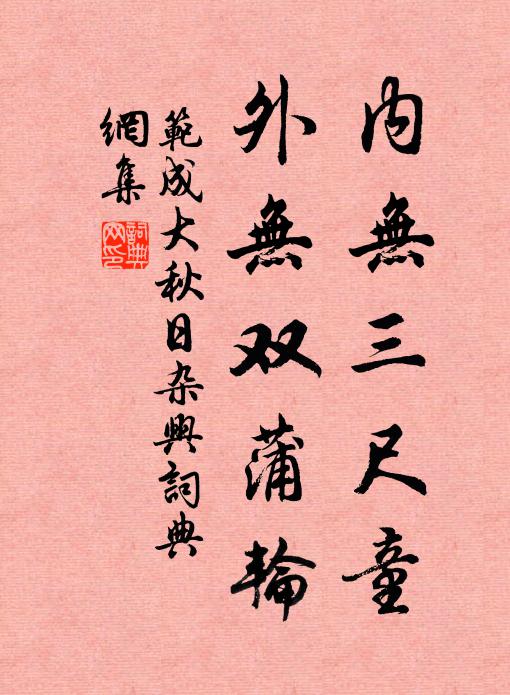 內無三尺童
外無双蒲輪
範成大秋日杂興詞典
網集
詞典
网印